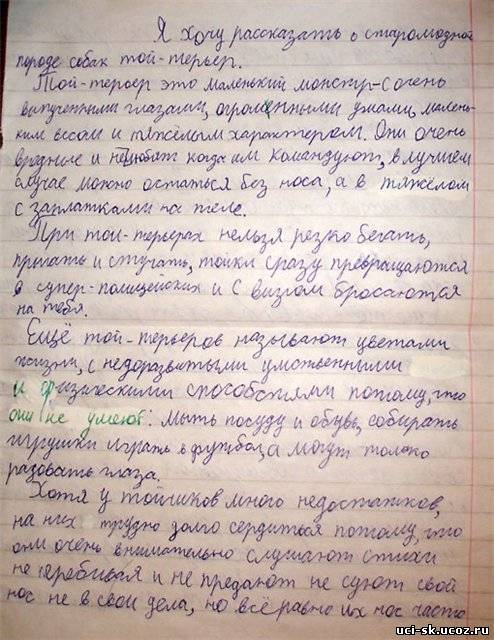 Я хочу рассказать о старомодной
породе собак той-терьер.
Той-терьер это маленький монстр-с очень
выпученными глазами, огроменными ушами, мале-
ким весом и тяжёлым характером. Они очень
вредные и не любят когда им командуют, в лучшем
случае можно остаться без носа, а в тяжёлом
с заплатками на теле.
При той-терьерах нельзя резко бегать,
прыгать и стучать, тойки сразу превращаются
в супер-полицейских и с визгом бросаются
на тебя.
Ещё той-терьеров называют цветами
жизни, с недоразвитыми умственными
и физическими способстями потому, что
они не умеют. мыть посуду и обувь, собирать
игрушки играть в футбол, а могут только
разовать глаза.
Хотя у тойчиков много недостатков,
на них трудно долго сердиться потому, что
они очень внимательно слушают стихи
не перебивая и не предают не суют свой
нос не в свои дела, но всё равно их нос часто
uci-sk.ucoz.ru